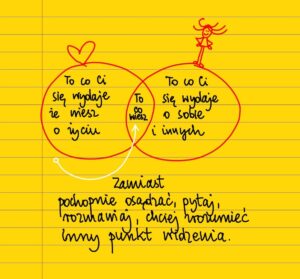 To co Ci
się wydaje
że wiesz
o życiu
To
co
wiesz
To co Ci
się wydaje
o sobie
i innych
Zamiast
pochopnie osądzać, pytaj,
rozmawiaj, chciej zrozumieć
inny punkt widzenia.